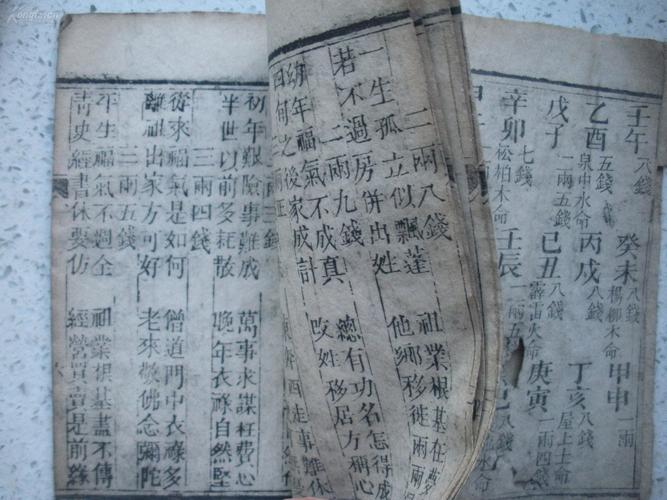 壬午 八錢 癸未 八錢 楊柳木命 甲申 一兩
乙酉 五錢 泉中水命 丙戌 八錢 丁亥 八錢 屋上土命
戊子 一兩五錢 己丑 八錢 霹雷火命 庚寅 一兩四錢
辛卯 七錢 松柏木命 壬辰 一兩五
二兩八錢
一生孤立似飄蓬 祖業根基在夢
若不過房併出姓 他鄉移徙兩兩
二兩九錢
幼年福氣不成真 總有功名怎得成
之後家成計 改姓移居方稱心
三錢
初年艱險事難成 萬事求謀枉費心
半世以前多耗散 晚年衣祿自然堅
三兩四錢
從來福氣是如何 僧道門中衣祿多
離祖出家方可好 老來懷佛念彌陀
三兩五錢
平生福氣不週全 祖業根基盡不傳
青史經書休要仿 經營買賣是前緣